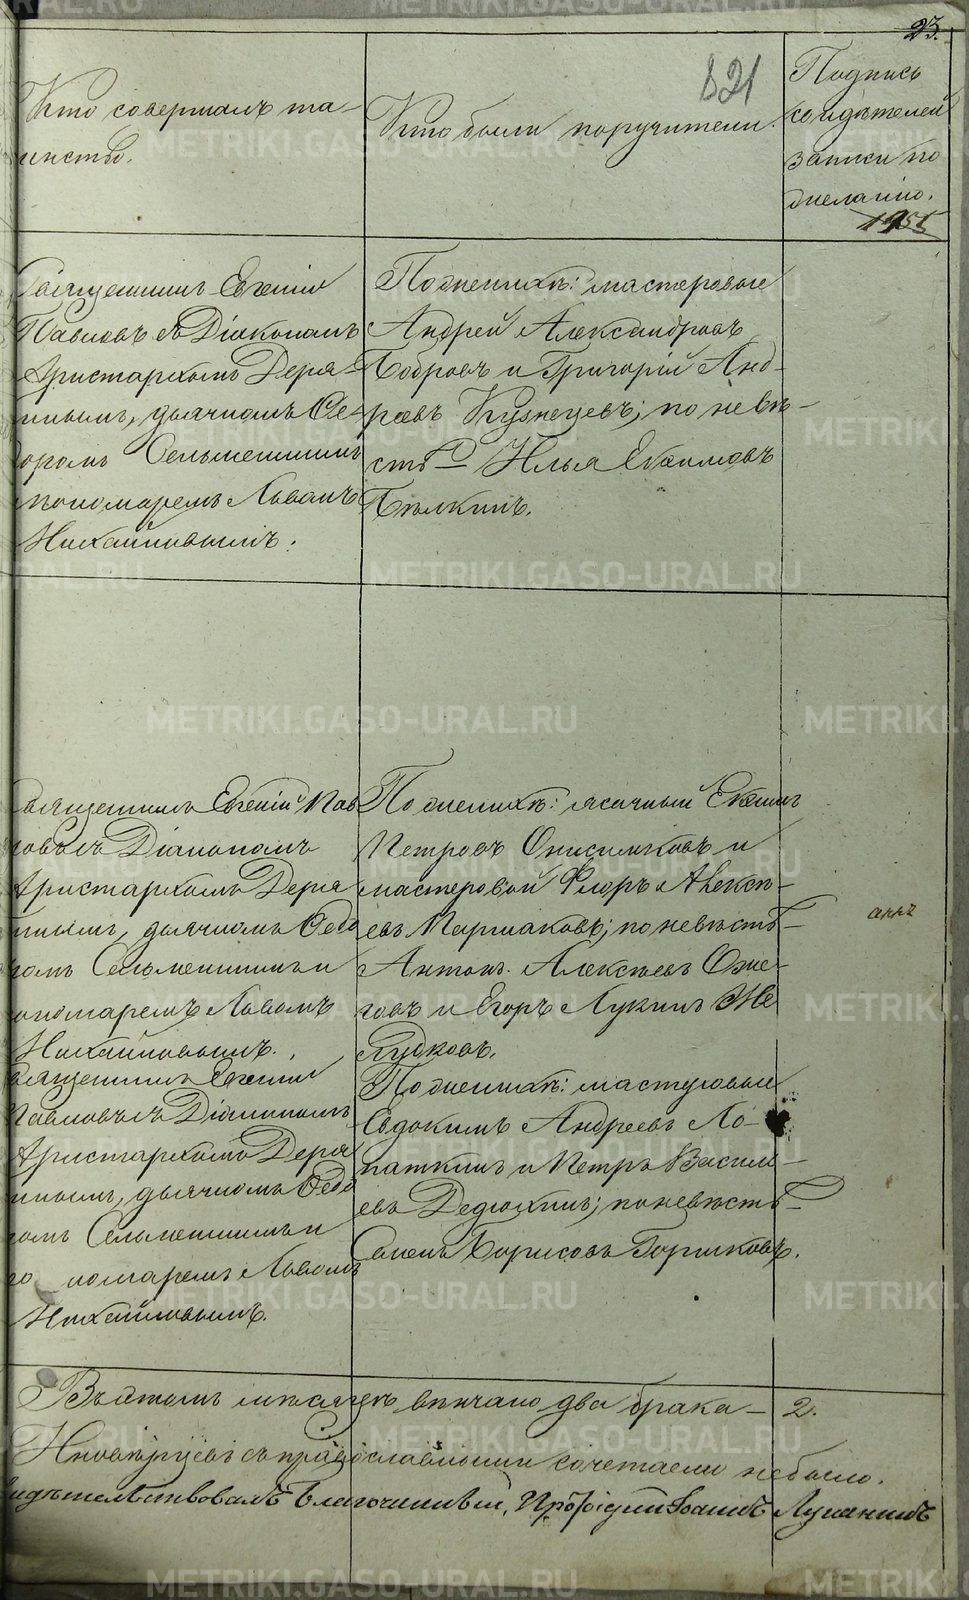 23.
821
Кто совершалъ та-
инство.
Кто были поручители.
Подпись
свидѣтелей
записи по
желанію.
Священникъ Евгеній
Павловъ съ Діакономъ
Аристархомъ Деря-
гинымъ, дьячкомъ Ѳе-
доромъ Сельменскимъ
пономаремъ Львомъ
Михайловымъ.
По женихѣ: мастеровые
Андрей Александровъ
Бобровъ и Григорій Анд-
реевъ Кузнецевъ; по невѣ-
стѣ Илья Екимовъ
Бѣлкинъ.
Священникъ Евгеній Пав
ловъ съ Діакономъ
Аристархомъ Деря
гинымъ, дьячкомъ Ѳедо
ромъ Сельменскимъ и
пономаремъ Львомъ
Михайловымъ.
По женихѣ: ясачный Екимъ
Петровъ Онисимковъ и
мастеровой Флоръ Алексѣ-
евъ Паршаковъ; по невѣстѣ
Антонъ Алексѣевъ Оже-
говъ и Егоръ Лукинъ Же
лудковъ.
аннъ
Священникъ Евгеній
Павловъ съ Діакономъ
Аристархомъ Деря
гинымъ, дьячкомъ Ѳедо
ромъ Сельменскимъ и
пономаремъ Львомъ
Михайловымъ.
По женихѣ: мастеровые
Евдокимъ Андреевъ Ло-
паткинъ и Петръ Василь-
евъ Дедюхинъ; по невѣстѣ
Семенъ Борисовъ Горшковъ.
Въ этомъ мѣсяцѣ вѣнчано два брака – 2.
Иновѣрцевъ съ православными сочетаемо не было.
свидѣтельствовалъ Благочинный, Протоіерей Іоаннъ Луканинъ
METRIKI.GASO-URAL.RU